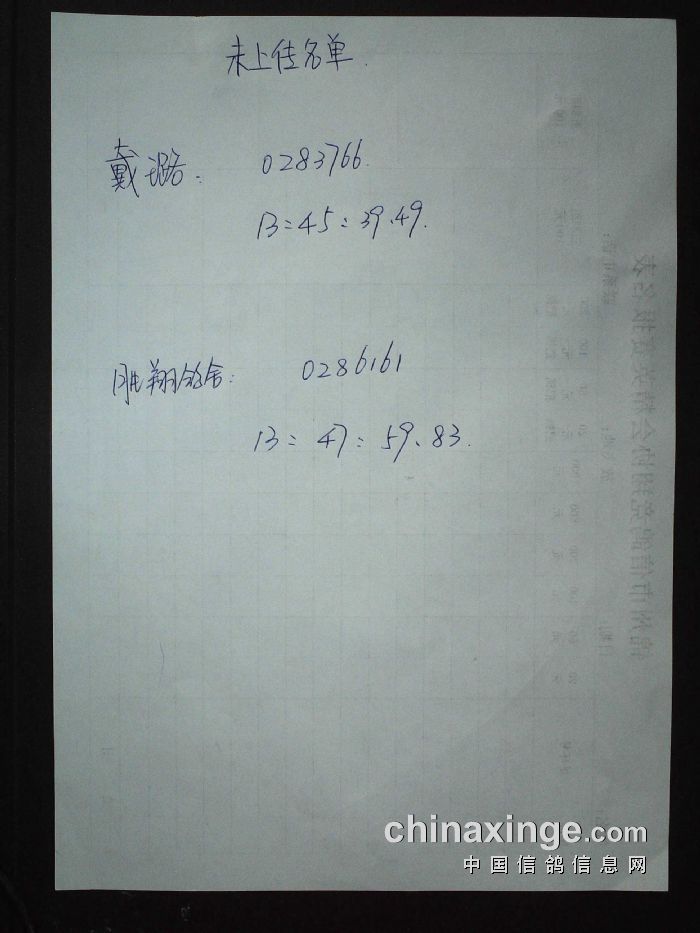 未上传名单.
戴璐: 0283766.
13:45:39.49.
胜翔鸽舍: 0286161
13:47:59.83.
chinaxinge.com
中国信鸽信息网